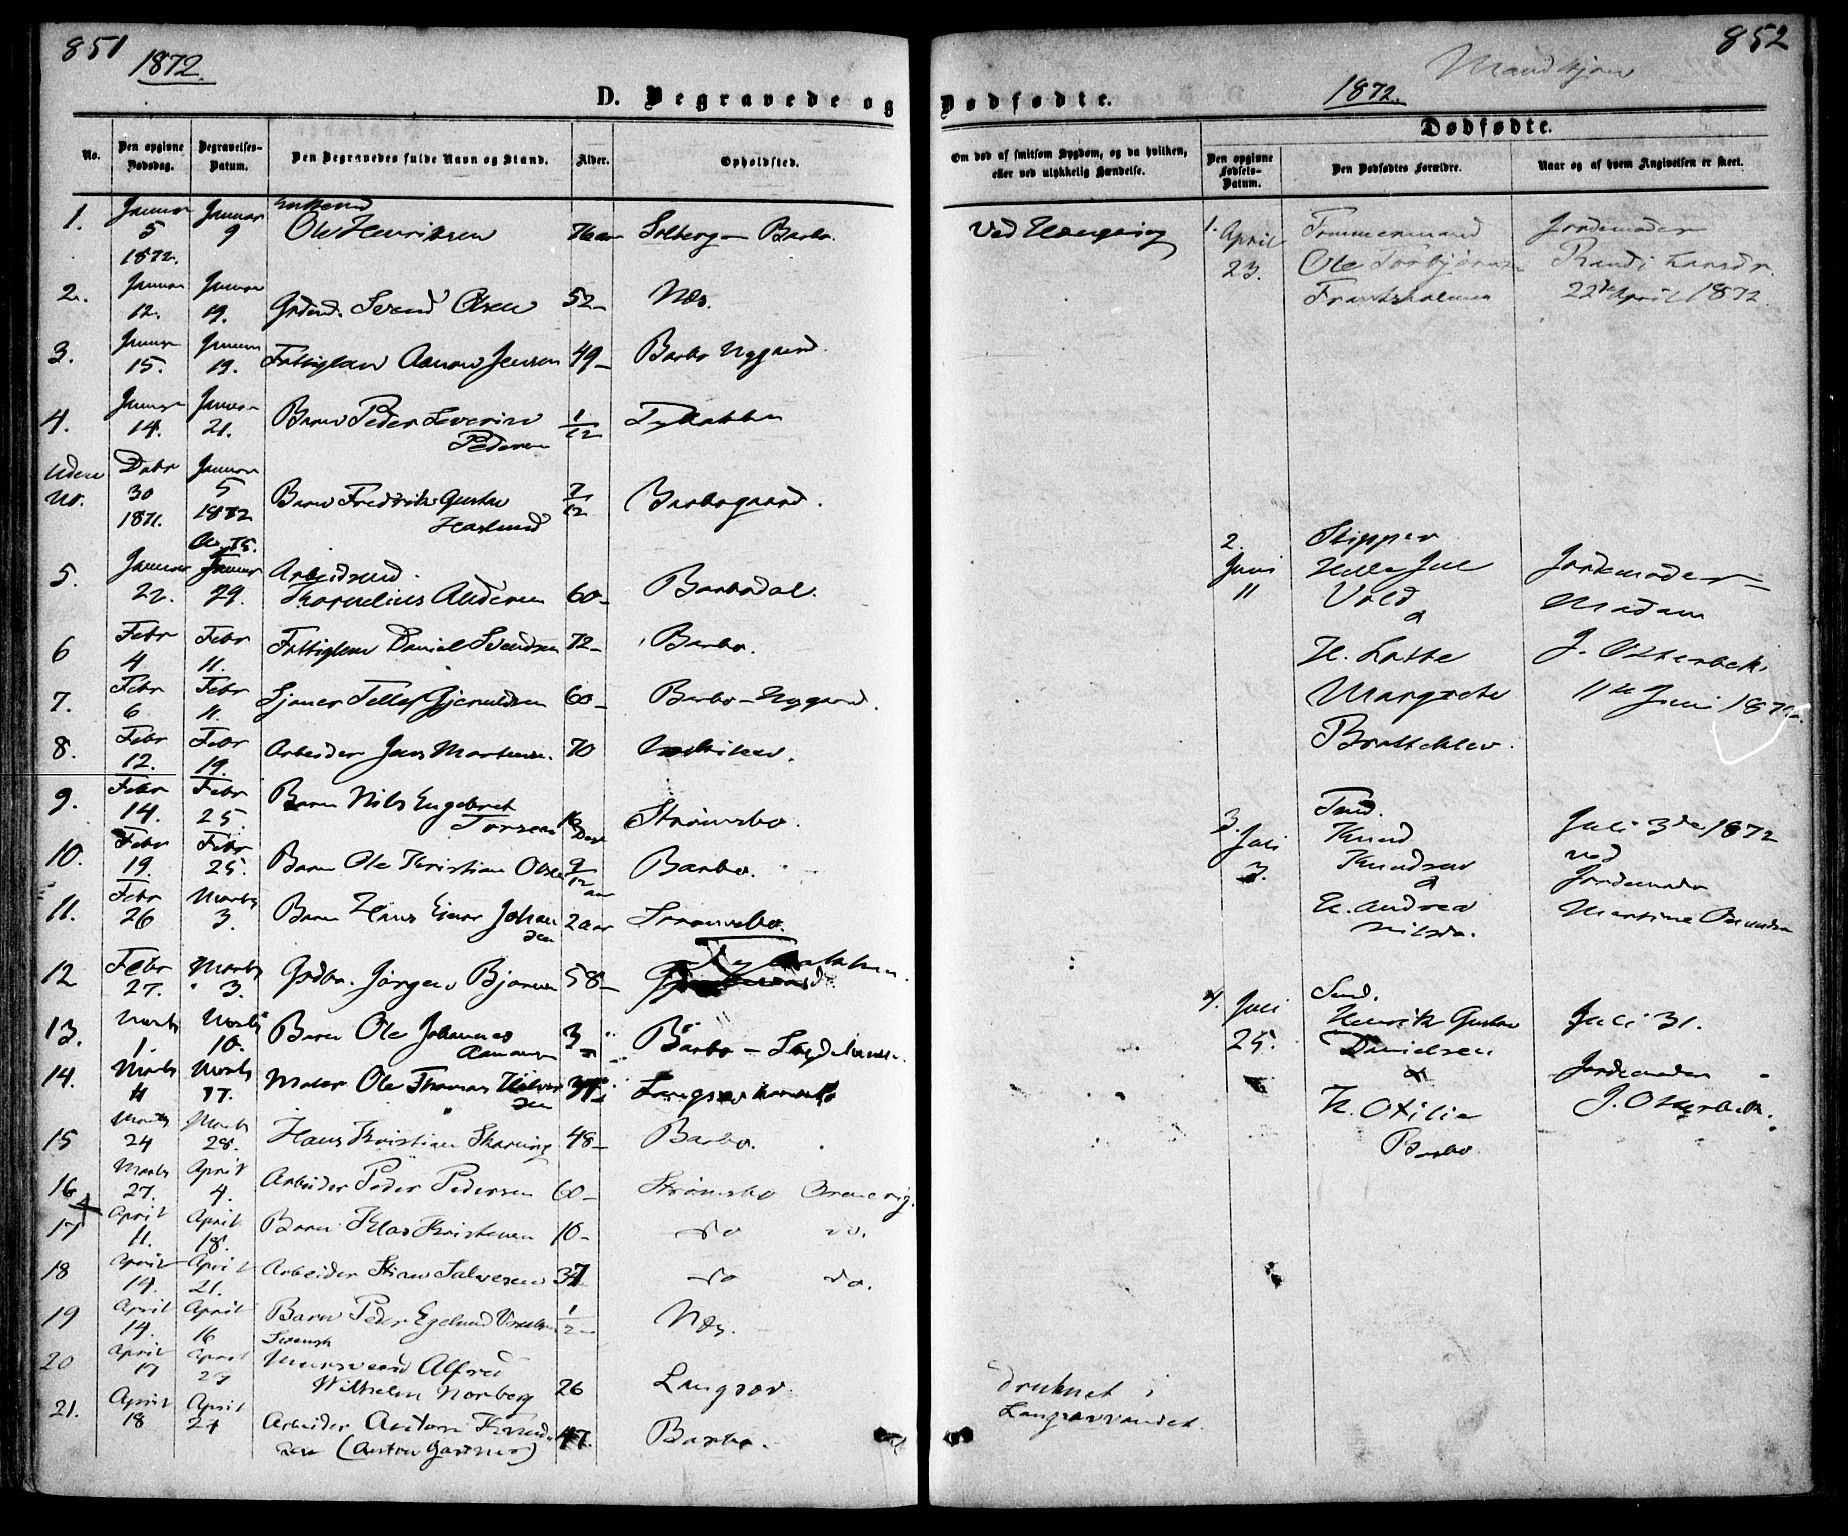 851
1872.
D. Begravede og
No.
Den opgivne Dødsdag.
Begravelses-Datum.
Den Begravedes fulde Navn og Stand.
Alder.
Opholdsted.
1. Januar 5 1872. Januar 9 Enkemd Ole Henriksen 76 aar Solberg – Barbo.
2. Januar 12. Januar 19. Grdmd. Svend Olsen 52 – Næs.
3. Januar 15. Januar 19. Fattiglem Aanon Jensen 49 – Barbo Nygaard.
4. Januar 14. Januar 21. Barn Peder Severin Pedersen 1/12
Uden No. Dcbr 30 1871. Januar 5 1872 Barn Fredrik Gustav Haslund 7/12 Barbogaard.
5. Januar 22. Januar 29. Arbeidsmd. Thornelius Andersen 60 – Barbodal.
6 Febr 4. Febr 11. Fattiglem Daniel Svendsen 72 – Barbo.
7. Febr 6 Febr 11. Tellef Gjeruldsen 60 – Barbo – Nygaard.
8. Febr 12. Febr 19. Arbeider Jens Mortensen. 70
9. Febr 14. Febr 25. Barn Nils Engebret Torsen 16 Strømsbo.
10. Febr 19. Febr 25. Barn Ole Kristian Olsen 9/12 aar Barbo.
11. Febr 26 Marts 3. Barn Hans Einar Johansen 2 aar Strømsbo.
12 Febr 27. Marts 3. Grdbr. Jørgen Bjørnsen 58 –
13. Marts 1. Marts 10. Barn Ole Johannes Aanonsen 3 Barbo –
14. Marts 4 Marts 17. Matr Ole Thomas Halvorsen Langsæ
15 Marts 24 Marts 28. Hans Kristian 48 – Barbo.
16 Marts 27. April 4. Arbeider Peder Pedersen 60 – Strømsbo
17 April 11. April 18. Barn Klas Kristensen 10 – do do.
18 April 14. April 21. Arbeider Stian Salvesen 37 do do.
19 April 14. April 16 Barn Peder Egelund 1/2 – Næs.
20 April 17 April Svensk Alfred Wilhelm Norberg 26 Langsæv.
21. April 18 April 24 Arbeider Anton Knudsen (Anton Gartner) 47. Barbo.
852
Mandkjøn
1872.
Dødfødte.
Om død af smitsom Sygdom, og da hvilken, eller ved ulykkelig Hændelse.
Dødfødte.
Den opgivne Fødsels-Datum.
Den Dødfødtes Forældre.
Naar og af hvem Angivelsen er skeet.
Ved Hængning
1. April 23. Tømmermand Ole Torbjørnsen Frantsholmen Jordemoder Randi Larsdr. 22de April 1872.
2. Juni 11 Skipper Juel Vold & H. Lotte Margrete Brætteklev. Jordemoder Madam J. Otterbek 11te Juni 1872.
3. Juli 3. Knud Knudsen & H. Andrea Nilsdr. Juli 3de 1872 ved Jordemoder Martine
4. Juli 25. Henrik Gustav Danielsen & H. Otilie Barbo Juli 31. Jordemoder J. Otterbek.
druknet i Langsævvandet.